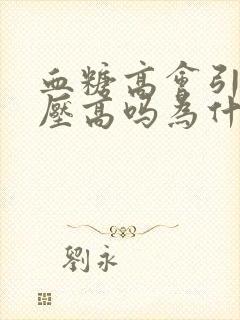 血糖高会引
壓高吗為什
劉永